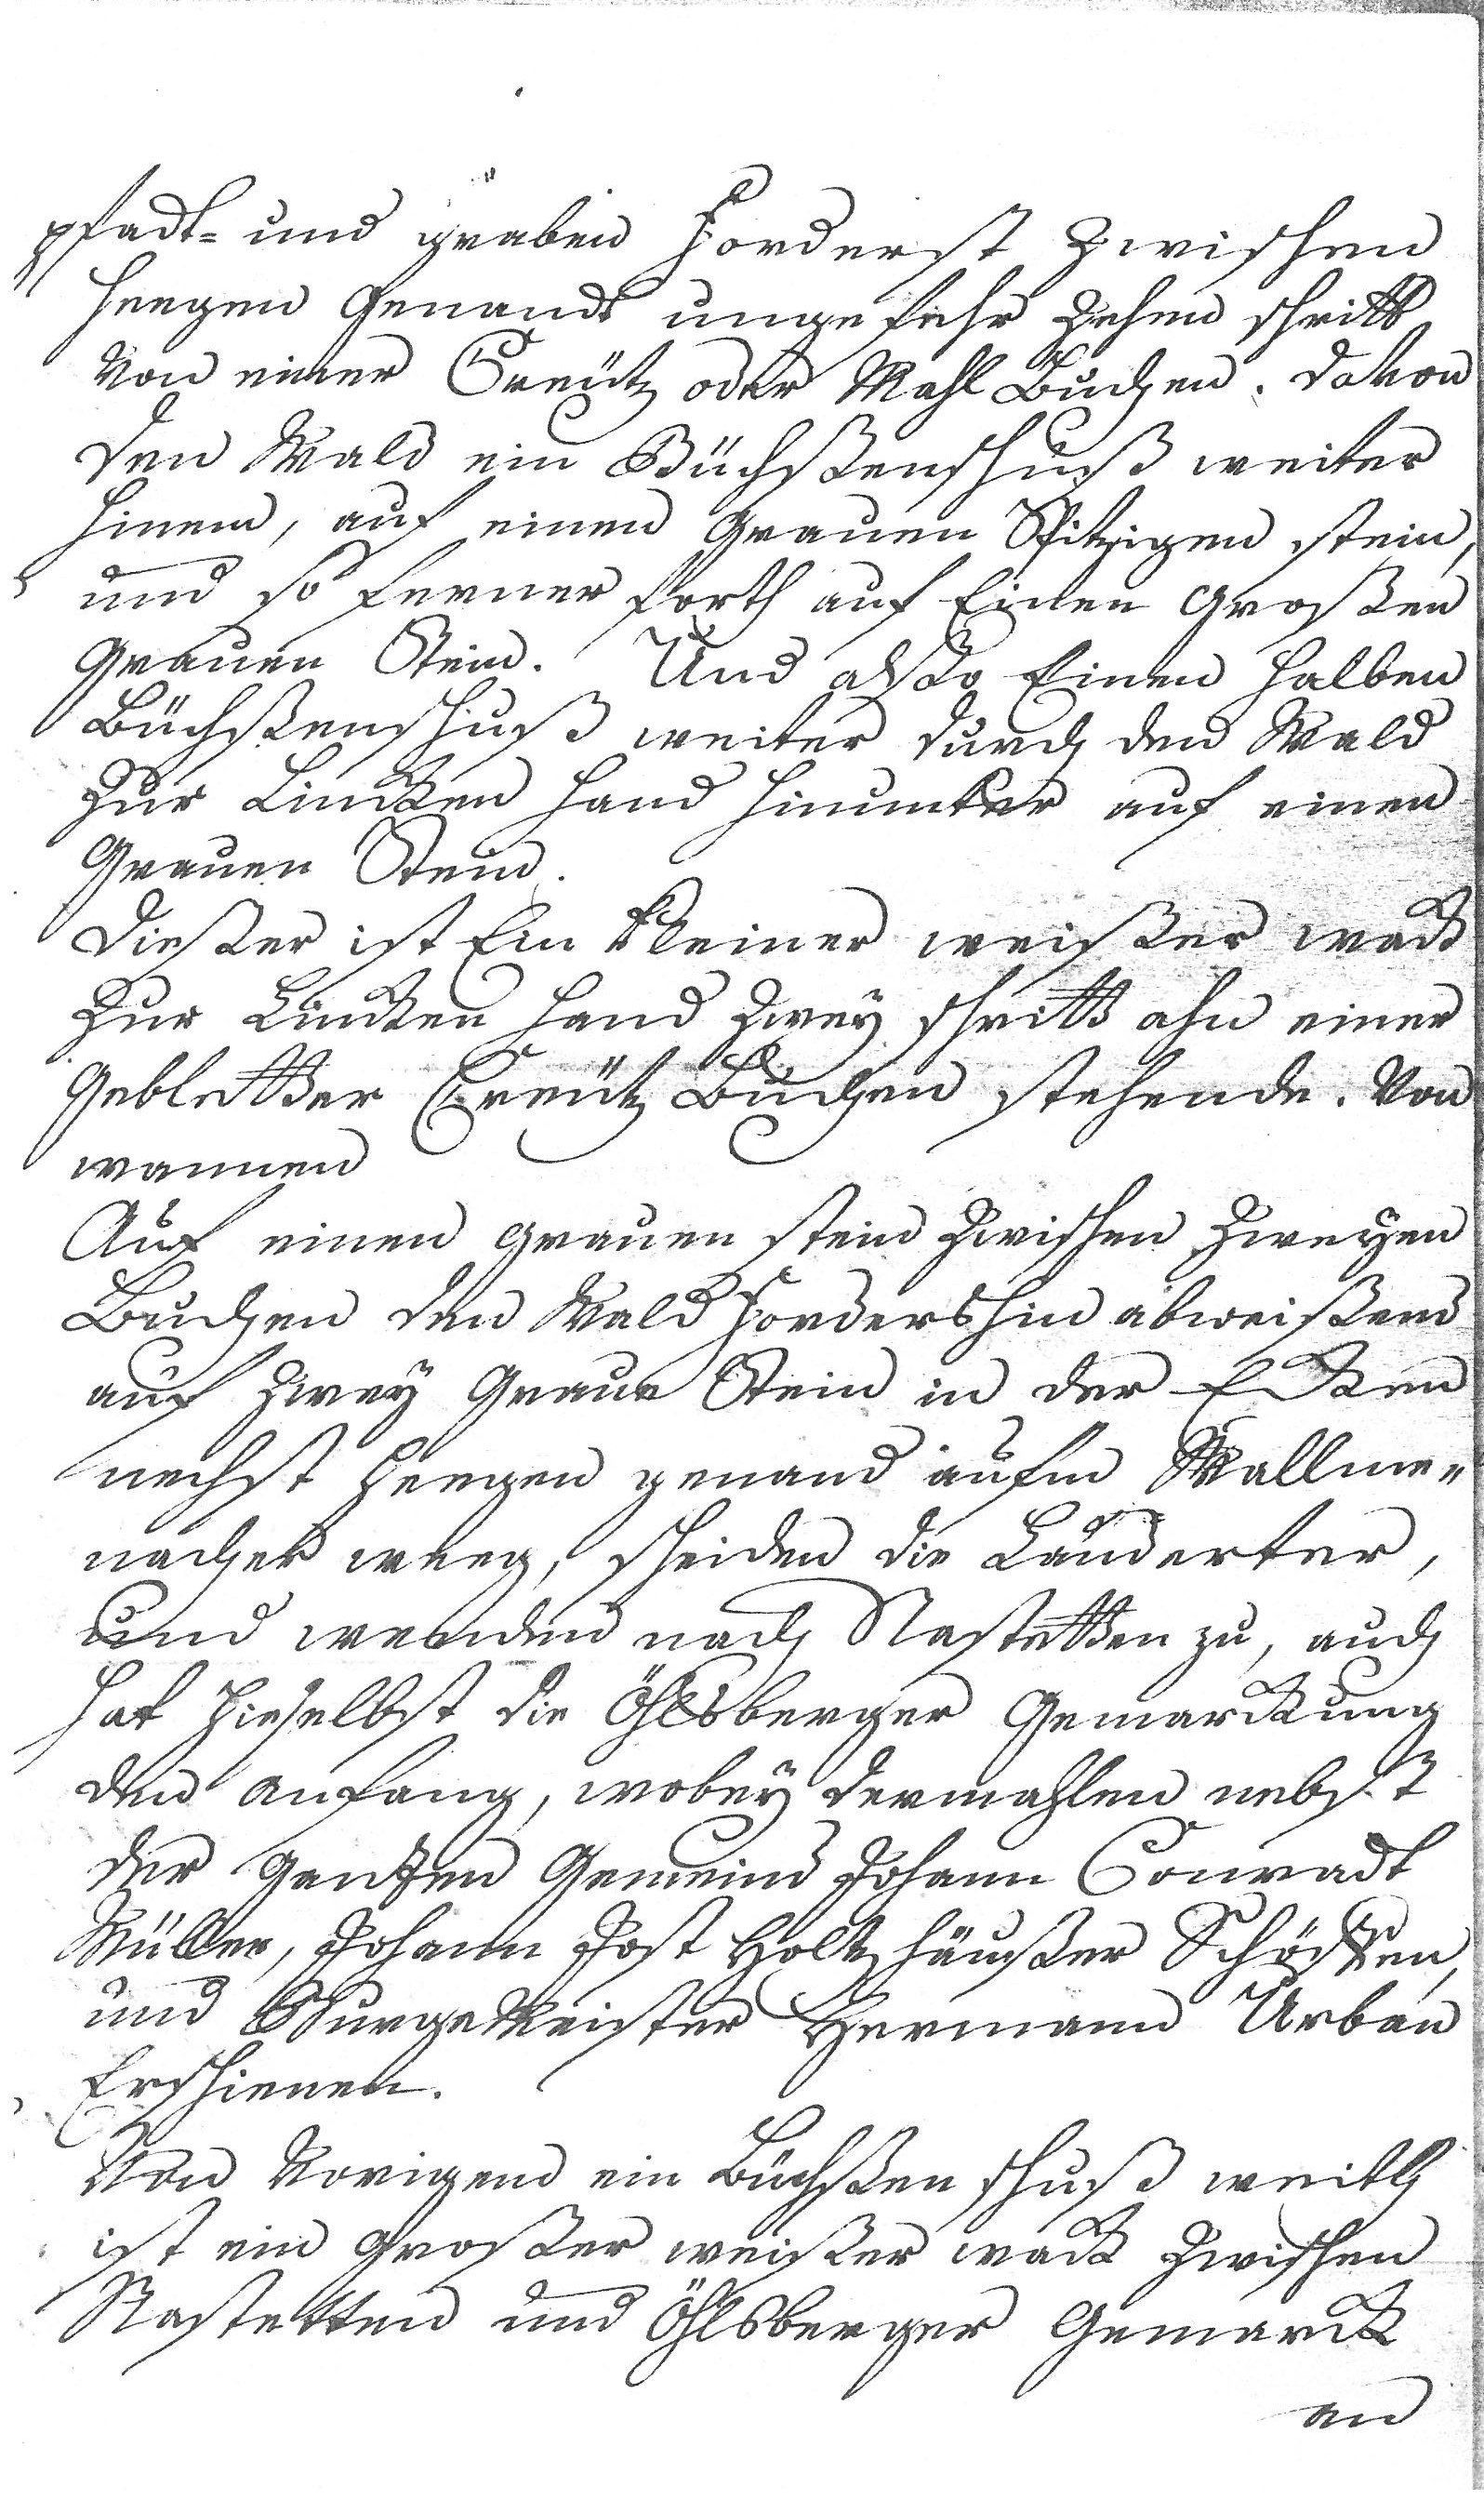 pfadt- und graben forderst Zwischen
heegen Genandt ungefehr Zehen schritt
Von einer Creütz oder Mahl Buchen. davon
den Wald ein Büchßenschuß weiter
hinein, auf einen Grauen Spitzigen stein,
und so ferner forth auf Einen Großen
Grauen Stein. Und alßo Einen halben
Büchßenschuß weiter durch den Wald
Zur Lincken hand hinunter auf einen
Grauen Stein.
dießer ist Ein kleiner weißer wack
Zur Lincken hand Zwey schritt ahn einer
Gebletzter Creütz Buchen stehende. Von
wannen
Auf einen grauen stein Zwischen Zweyen
Buchen den Wald fordershin abweißend
auf Zwey Graue Stein in der Ecken
nechst heegen genand aufm Wallme„
nacher weeg, scheiden die Lauderter,
und wenden nach Nastetten zu, auch
hat hieselbst die Öhlsberger Gemarckung
den anfang, wobey dermahlen nebst
der Gantzen Gemeind Johann Conradt
Müller, Johann Jost Holtzhäußer Schöffen,
und Burgemeister Hermann Urban
Erschienen.
Von Vorigem ein Büchßenschuß weith
ist ein großer weißer wack Zwischen
Nastetten und Öhlsberger Gemarck
an